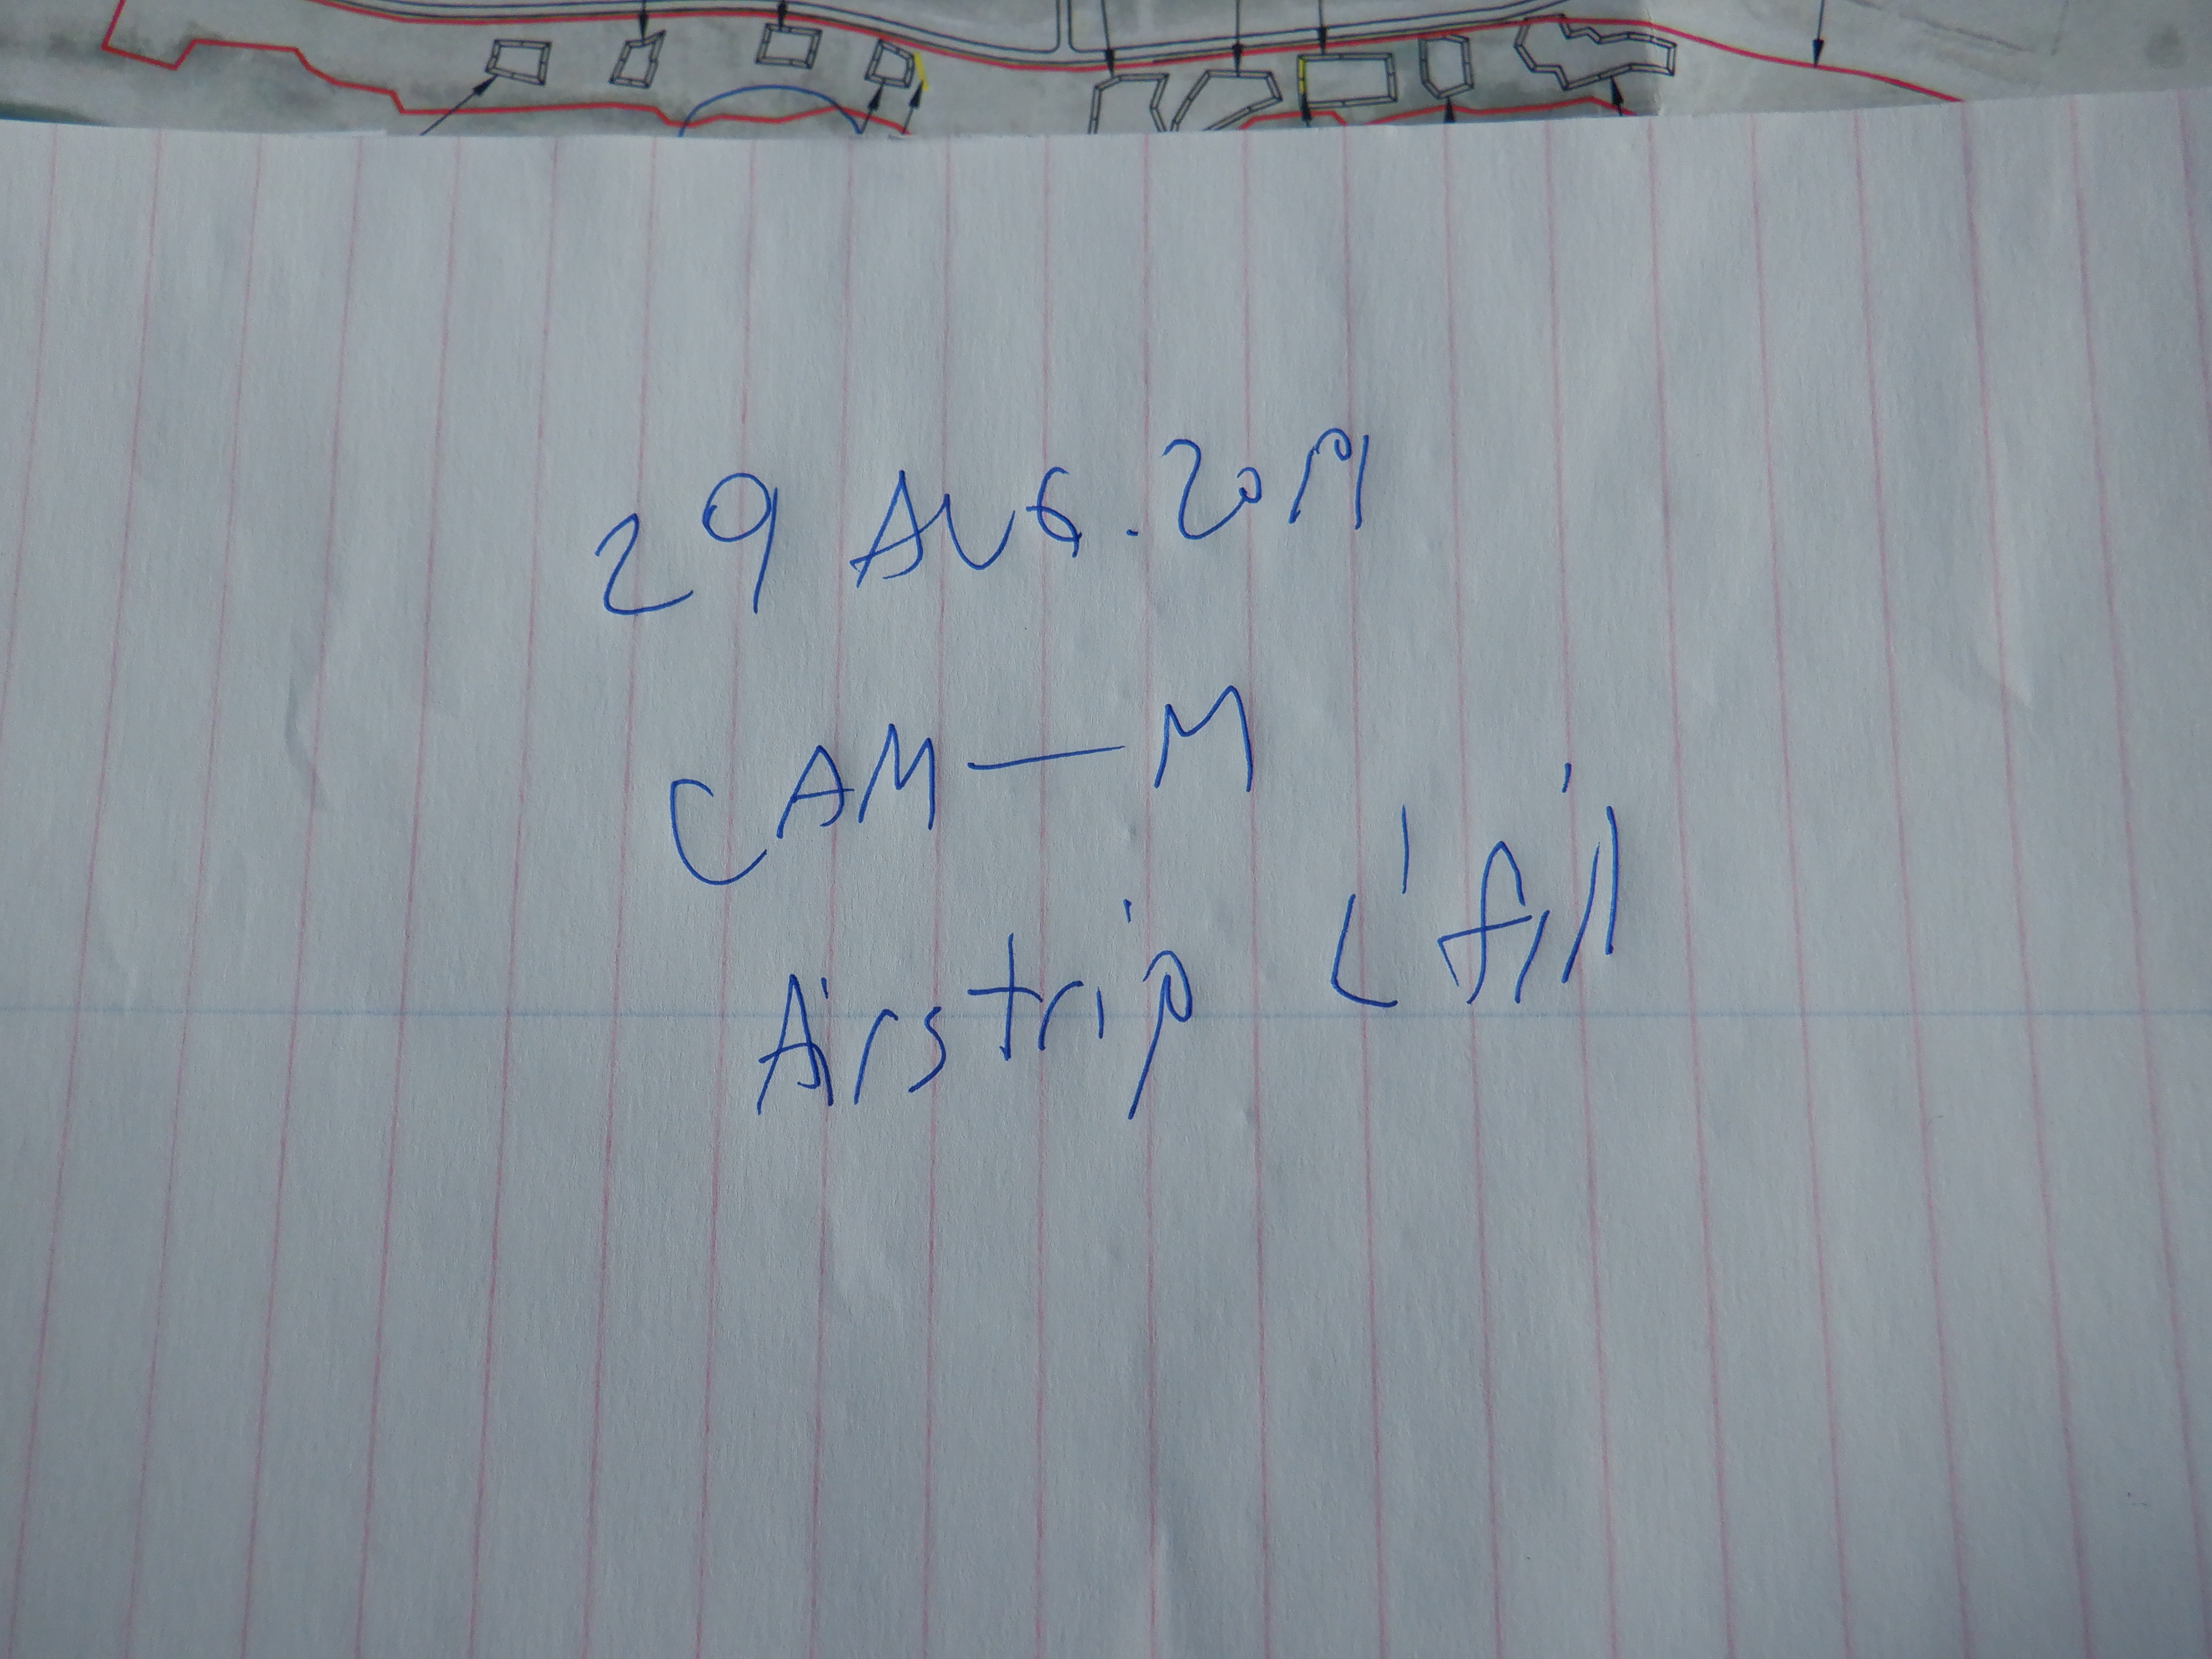 29 AUG. 2019
CAM — M
Airstrip L'fill